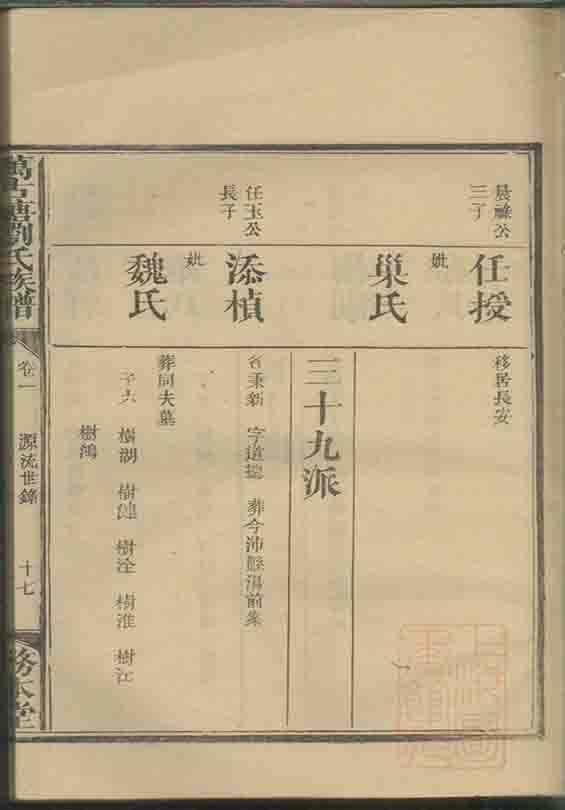 晨祿公
三子
任授
移居長安
妣
巢氏
三十九派
任玉公
長子
添楨
名秉新 字遠
葬今沛縣湯前案
妣
魏氏
葬同夫墓
子六 樹湖 樹 樹淦 樹淮 樹江
樹鴻
萬古塘劉氏族譜
卷一
源流世錄
十七
務本堂